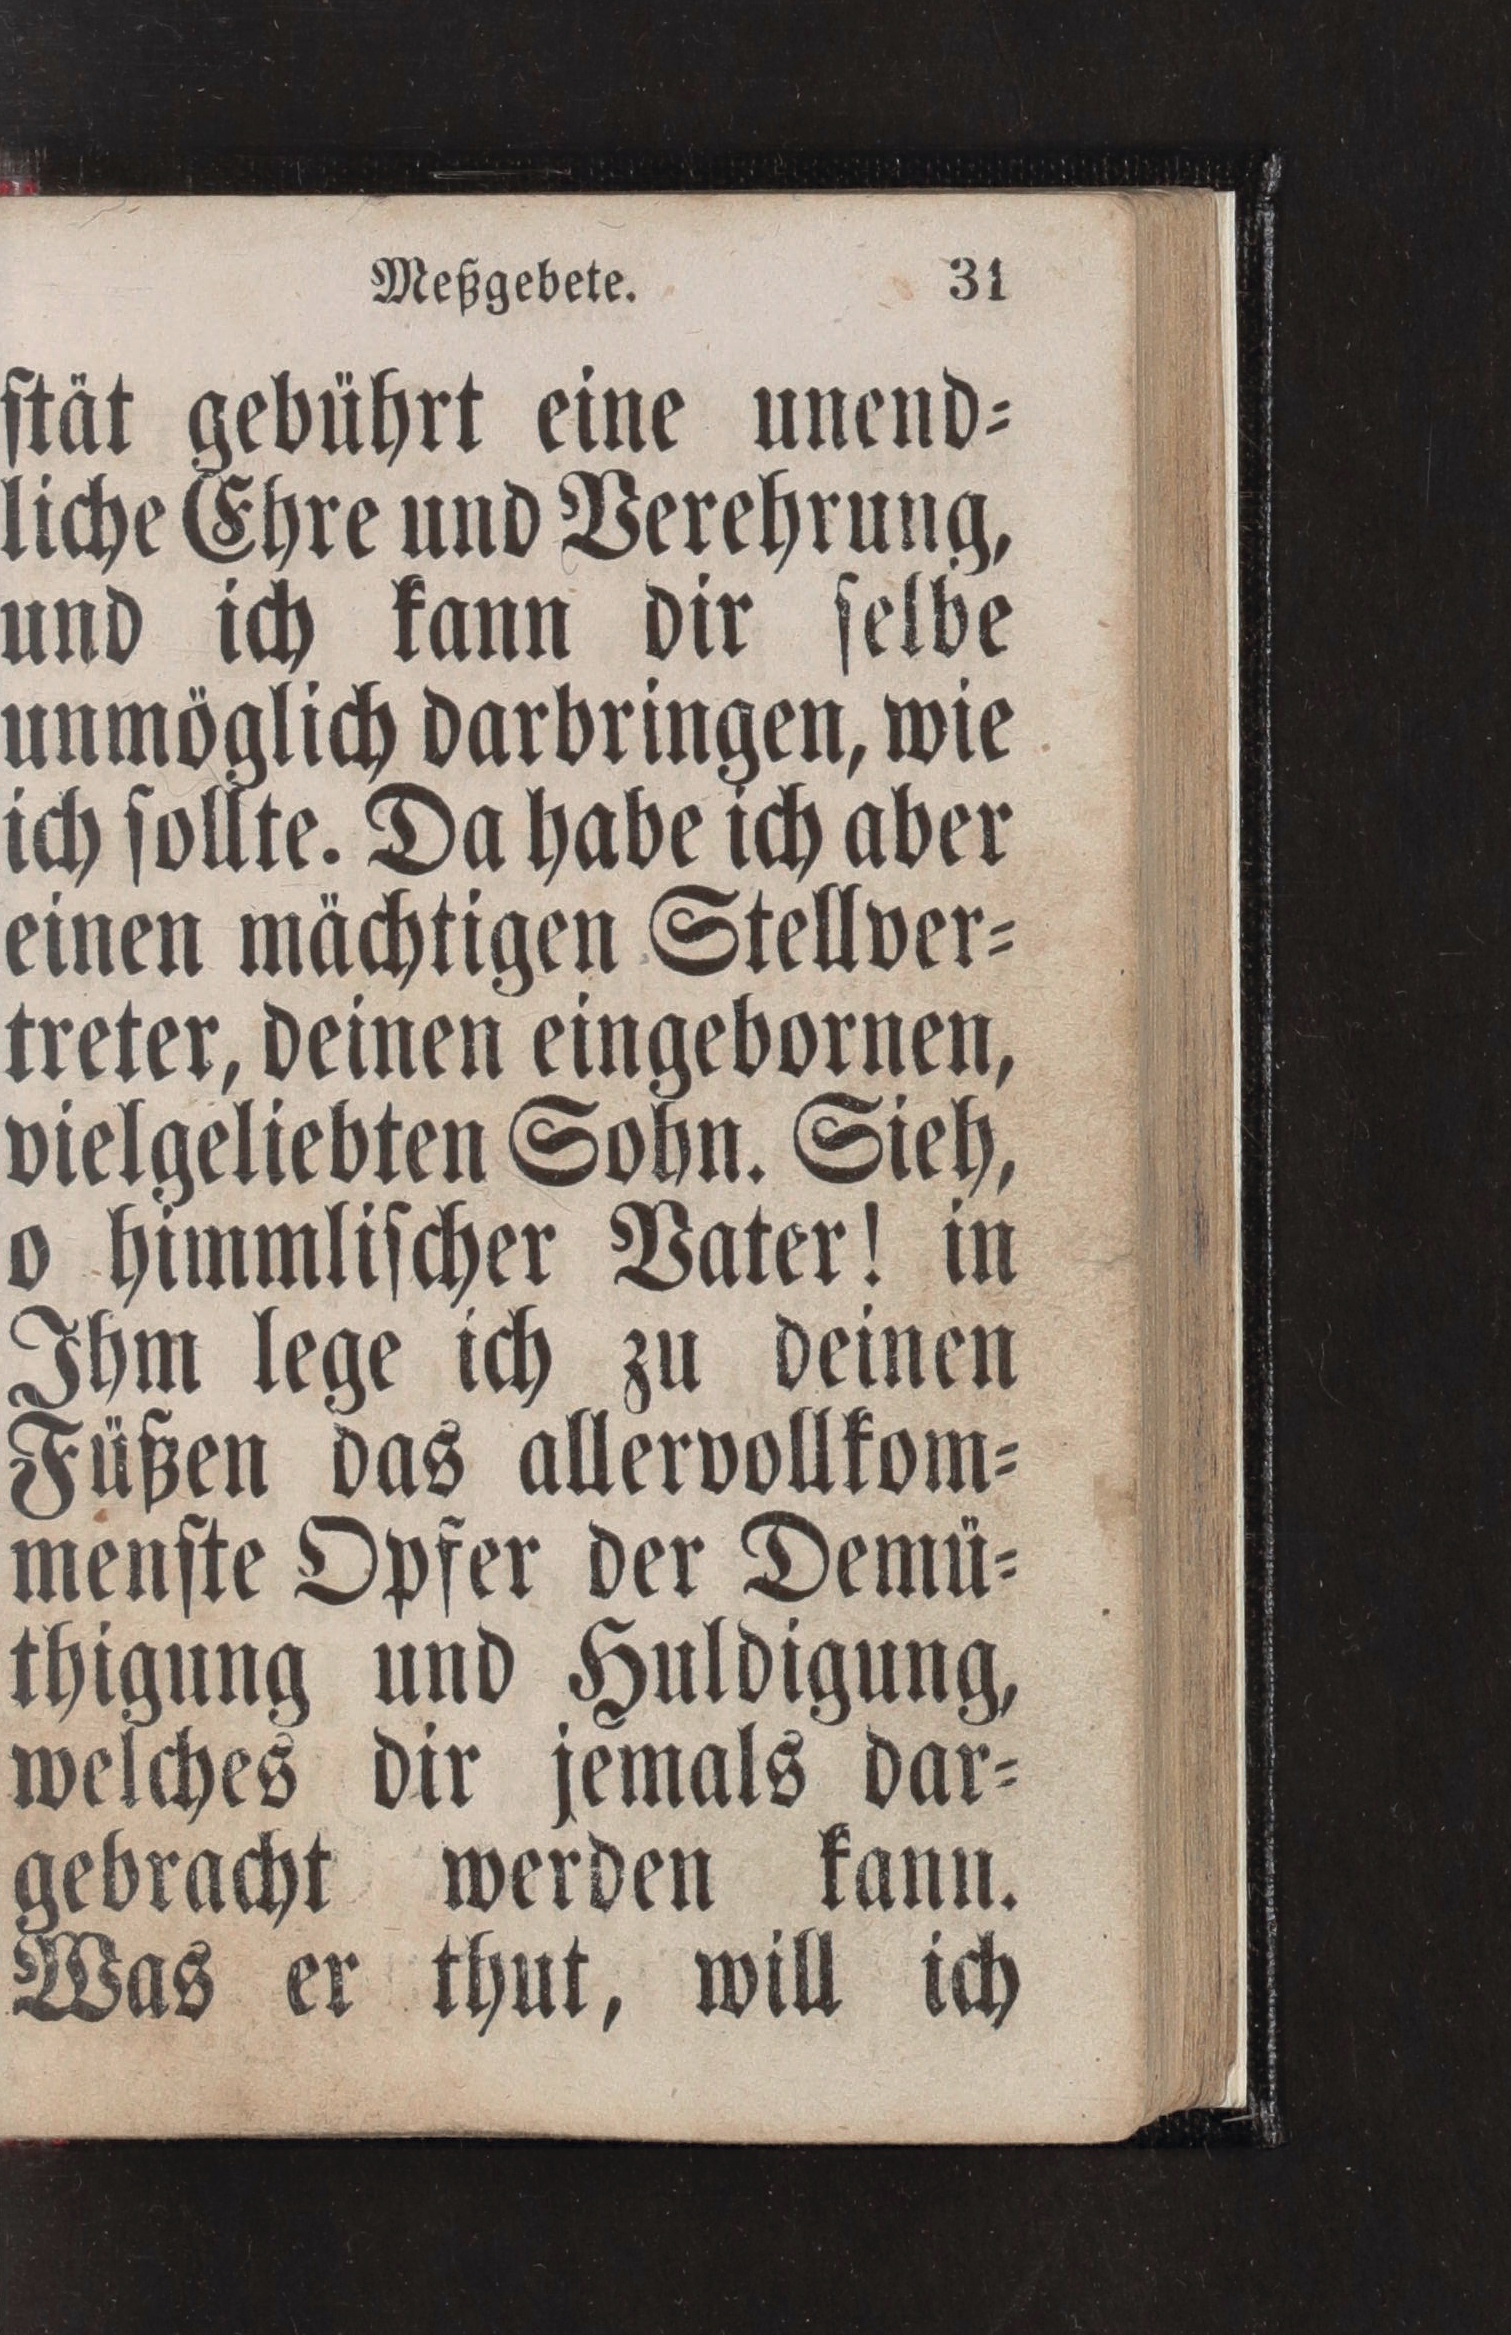 Meßgebete. 31
ſtät gebührt eine unend⸗
liche Ehre und Verehrung,
und ich kann dir ſelbe
unmöglich darbringen, wie
ich ſollte. Da habe ich aber
einen mächtigen Stellver⸗
treter, deinen eingebornen,
vielgeliebten Sohn. Sieh,
o himmliſcher Vater! in
Ihm lege ich zu deinen
Füßen das allervollkom⸗
menſte Opfer der Demü⸗
thigung und Huldigung,
welches dir jemals dar⸗
gebracht werden kann.
Was er thut, will ich